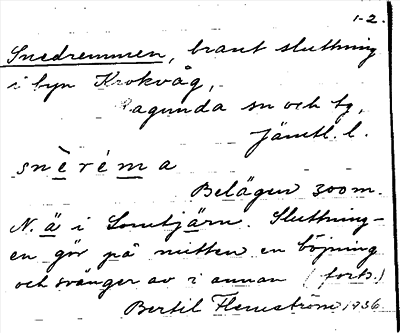 1-2.
Snedremmen, brant sluttning
i byn Krokvåg,
Ragunda sn och tg,
Jämtl. l.
snèréma
Belägen 300 m.
N. ä i Lomtjärn. Sluttning-
en gör på mitten en böjning
och svänger av i annan (forts.)
Bertil Flemström 1936